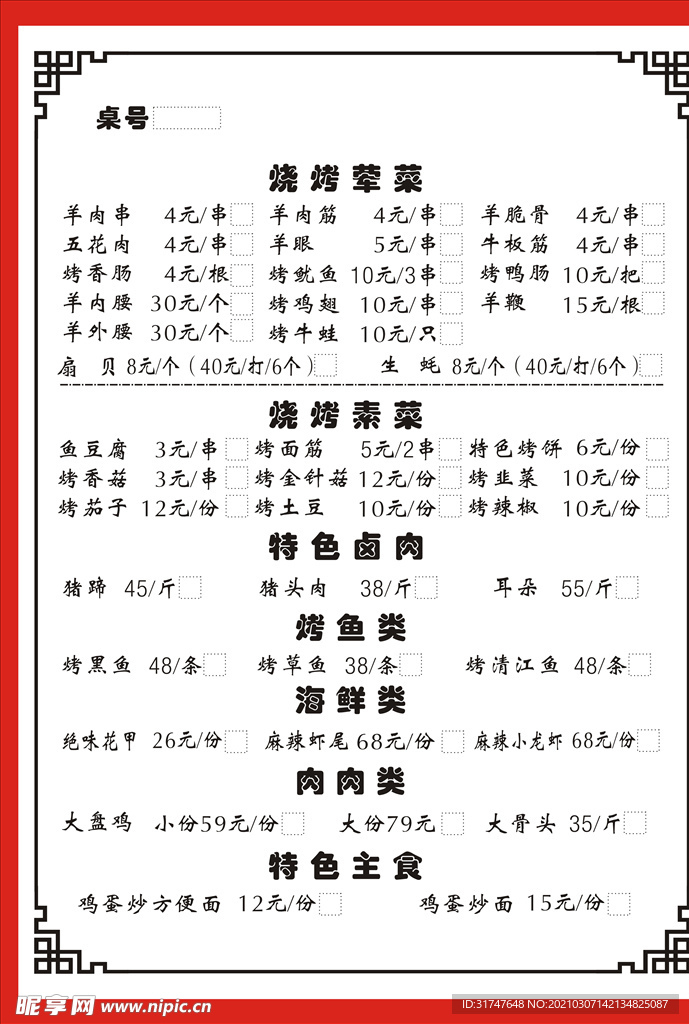 桌号
烧烤荤菜
羊肉串 4元/串 羊肉筋 4元/串 羊脆骨 4元/串
五花肉 4元/串 羊眼 5元/串 牛板筋 4元/串
烤香肠 4元/根 烤鱿鱼 10元/3串 烤鸭肠 10元/把
羊内腰 30元/个 烤鸡翅 10元/串 羊鞭 15元/根
羊外腰 30元/个 烤牛蛙 10元/只
扇 贝 8元/个（40元/打/6个） 生 蚝 8元/个（40元/打/6个）
烧烤素菜
鱼豆腐 3元/串 烤面筋 5元/2串 特色烤饼 6元/份
烤香菇 3元/串 烤金针菇 12元/份 烤韭菜 10元/份
烤茄子 12元/份 烤土豆 10元/份 烤辣椒 10元/份
特色卤肉
猪蹄 45/斤 猪头肉 38/斤 耳朵 55/斤
烤鱼类
烤黑鱼 48/条 烤草鱼 38/条 烤清江鱼 48/条
海鲜类
绝味花甲 26元/份 麻辣虾尾 68元/份 麻辣小龙虾 68元/份
肉肉类
大盘鸡 小份59元/份 大份79元 大骨头 35/斤
特色主食
鸡蛋炒方便面 12元/份 鸡蛋炒面 15元/份
昵享网 www.nipic.cn
ID:31747648 NO:20210307142134825087